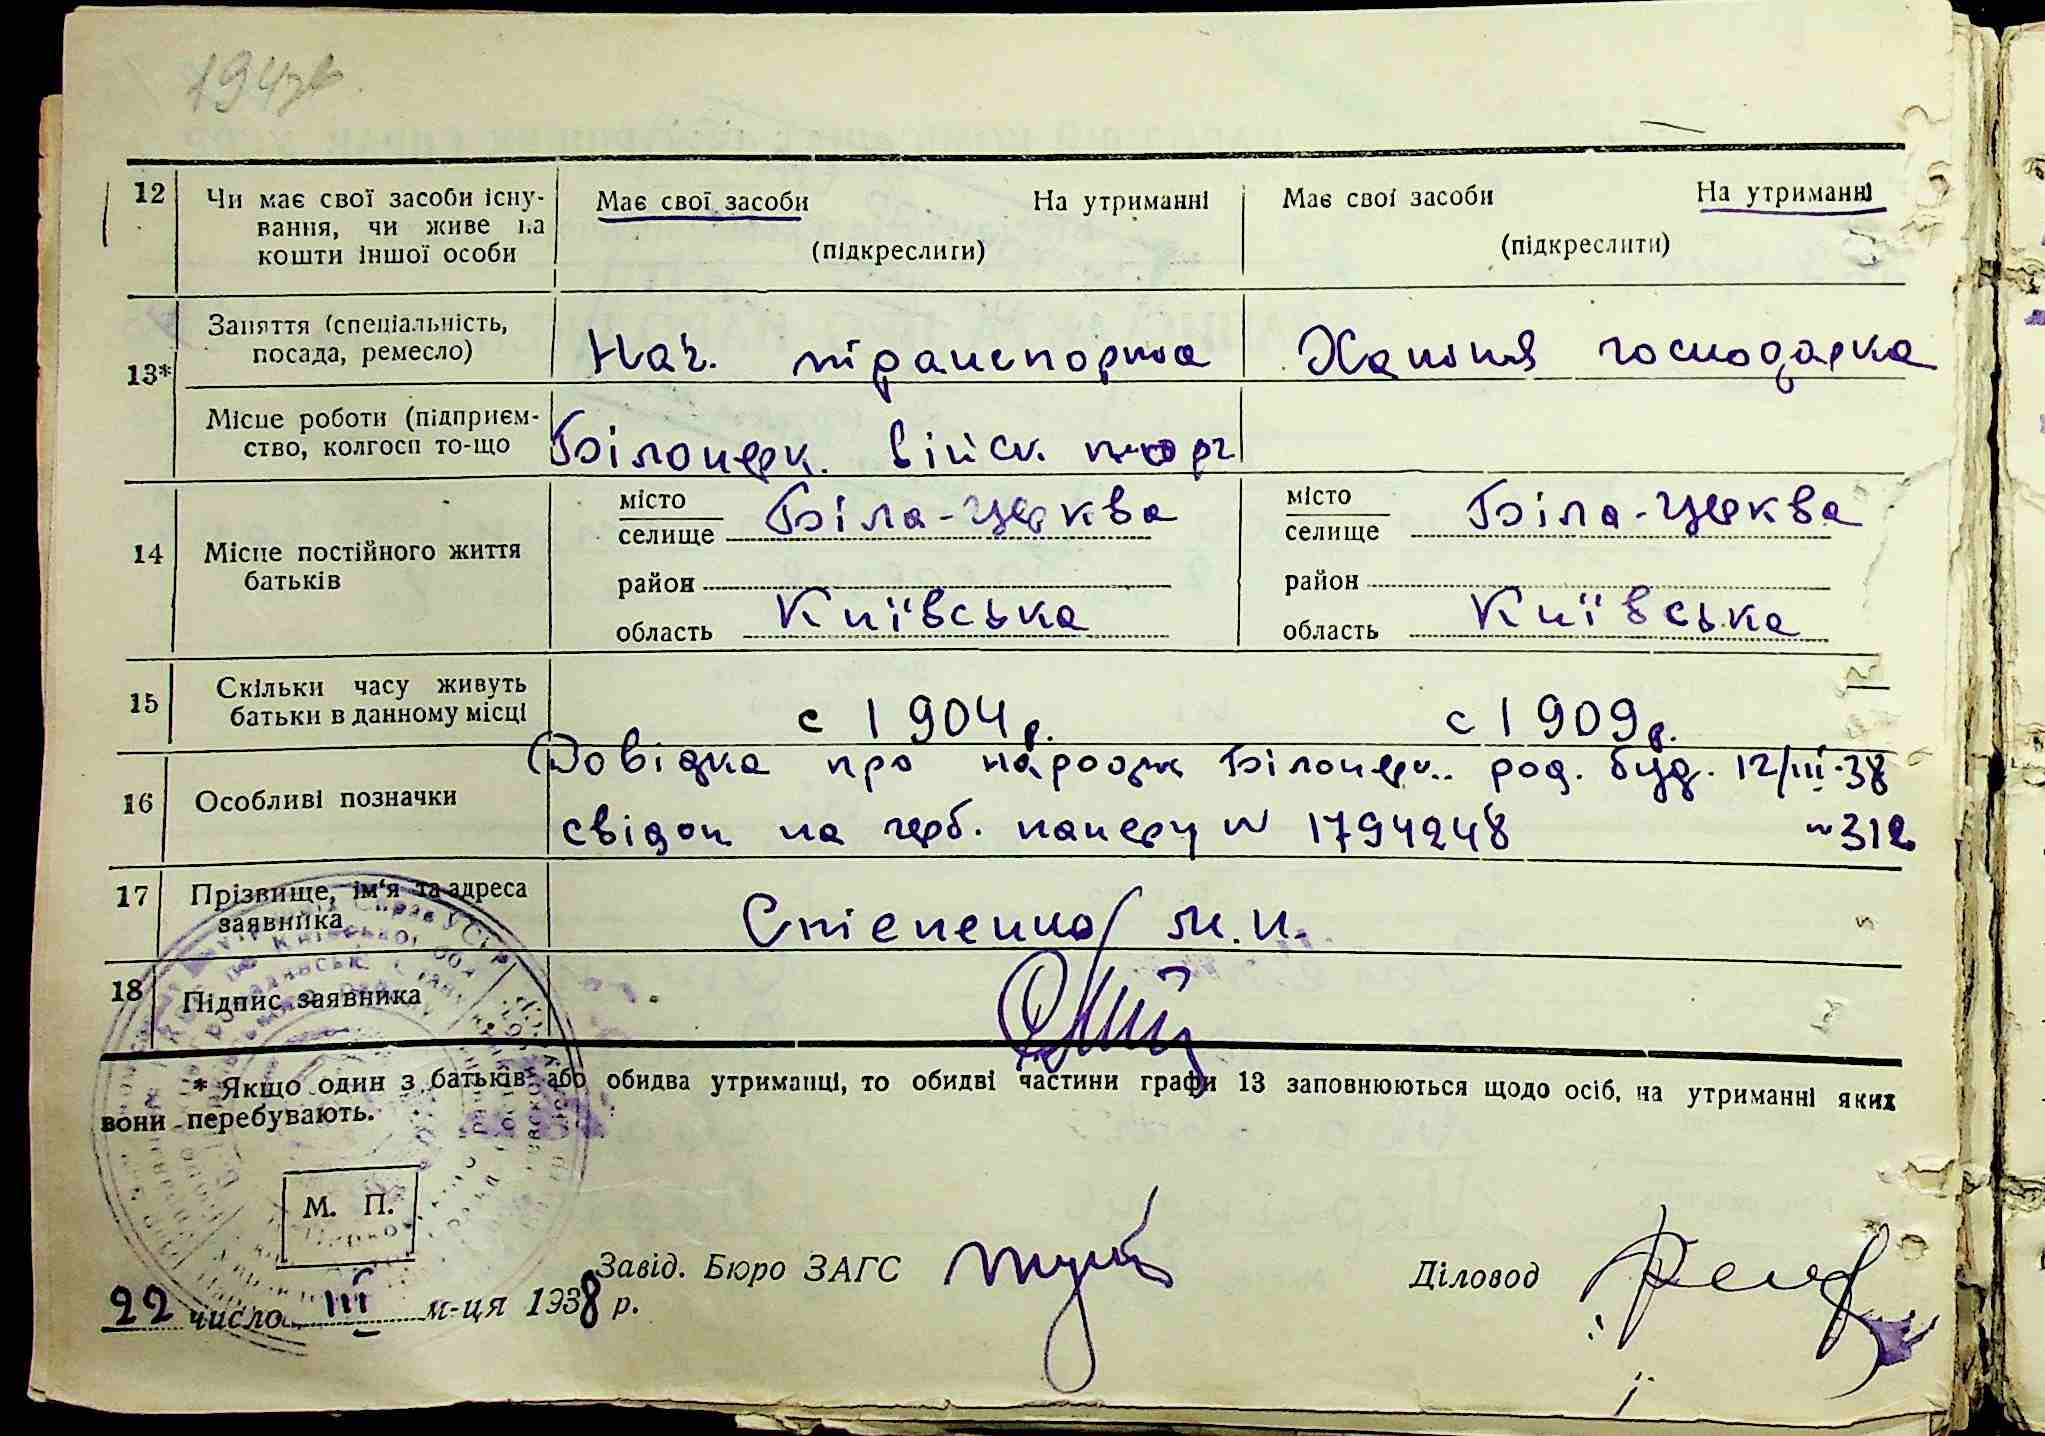 12 Чи має свої засоби існу- Має свої засоби На утриманні Має свої засоби На утриманні
вання, чи живе на
кошти іншої особи (підкреслити) (підкреслити)
13* Заняття (спеціальність,
посада, ремесло) Нач. транспорта Хатня господарка
Місце роботи (підприєм-
ство, колгосп то-що Білоцерк. війск. торг
14 Місце постійного життя
батьків
місто
селище Біла-Церква
район
область Київська
місто
селище Біла-Церква
район
область Київська
15 Скільки часу живуть
батьки в данному місці с 1904 р. с 1909 р.
16 Особливі позначки Довідка про народж Білоцерк. род. буд. 12/III-38
свідоц на герб. паперу N 1794248 N 312
17 Прізвище, ім'я та адреса
заявника Степенко М.И.
18 Підпис заявника
* Якщо один з батьків або обидва утриманці, то обидві частини графи 13 заповнюються щодо осіб, на утриманні яких
вони перебувають.
М. П.
Завід. Бюро ЗАГС Діловод
22 число III м-ця 1938 р.